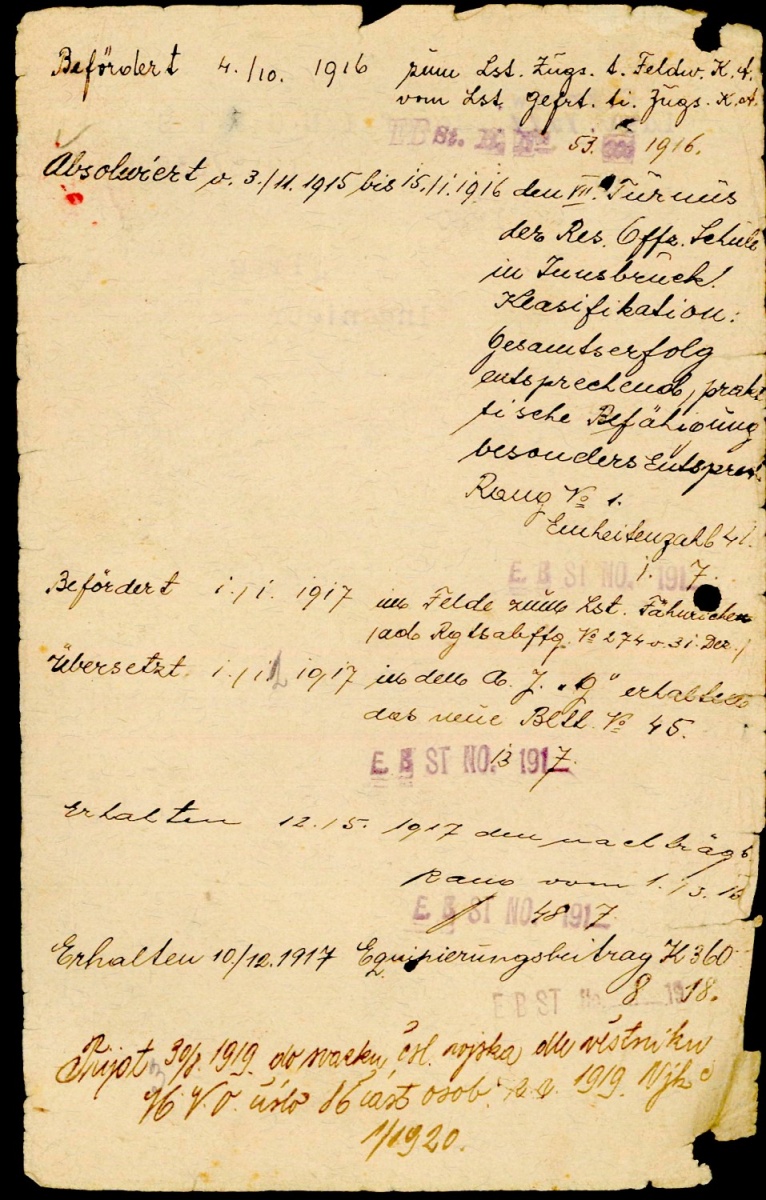 Befördert 4./10. 1916 zum Lst. Zugs. t. Feldw. K. A.
vom Lst. Gefrt. ti. Zugs. K. A.
EB St. 53. 1916.
Absolviert v. 3./11. 1915 bis 15./1. 1916 den VII. Turnus
der Res. Offz. Schule
in Innsbruck.
Klasifikation:
Gesamtserfolg
entsprechend, prak
tische Befähigung
besonders entspre
Rang No 1.
Einheitenzahl 41.
E B ST NO. 1. 1917.
Befördert 1./1. 1917 im Felde zum Lst. Fähnrichen
/ad Rgtsabftg. No 274 v. 31. Dez./
Übersetzt 1./1. 1917 in dem A. J. „g" erhalten
das neue Bltt. No 45.
E B ST NO. 13 1917.
Erhalten 12./5. 1917 den nachträgl
Rang vom 1./3. 16
E B ST NO. 48 1917
Erhalten 10/12. 1917 Equipierungsbeitrag K 360
E B ST No. 8 18.
Přijat 30/ 1919. do svazku čsl. vojska dle věstníku
M. N. O. číslo 86 část osob. 1919. Výk. č
1/1920.